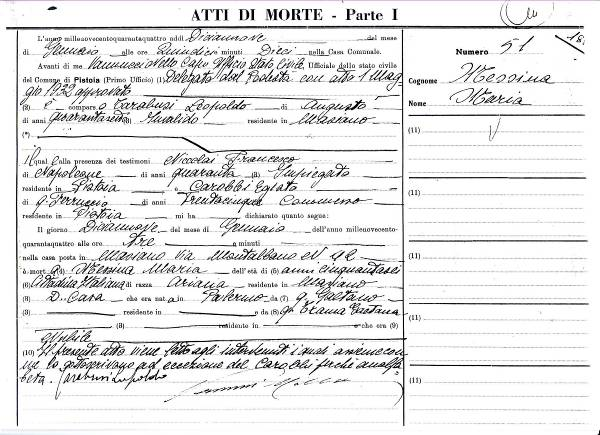 ATTI DI MORTE - Parte I
L'anno millenovecentoquarantaquattro addì Diciannove del mese
di Gennaio alle ore Quindici e minuti Dieci nella Casa Comunale.
Avanti di me Vannucci Nello Capo Ufficio Stato Civile Ufficiale dello stato civile
del Comune di Pistoia (Primo Ufficio) (1) Delegato dal Podestà con atto 1 Mag
gio 1932 approvato
(2) è compars o Carabusi Leopoldo di Augusto
di anni quarantasei (3) residente in Masiano
(*)
il quale alla presenza dei testimoni Nicolai Francesco
di Napoleone di anni quaranta (3) Impiegato
residente in Pistoia e Carobbi Egisto
di g. Ferruccio di anni Trentacinque
residente in Pistoia mi ha dichiarato quanto segue:
Il giorno Diciannove del mese di Gennaio dell'anno millenovecento-
quarantaquattro alle ore tre e minuti
nella casa posta in Masiano Via Montalbano N. 92
è mort a (4) Messina Maria dell'età di (5) anni cinquantasei
(6) Cittadina Italiana di razza Ariana residente in Masiano
(3) D. Casa che era nat a in Palermo da (7) g. Gaetano
(3) residente in e da (8) Gaetana
(3) residente in e che era (9)
Nubile
(10) Il presente atto viene letto agli intervenuti i quali insieme con
me lo sottoscrivono ad eccezione del Carobbi perché analfa
beta. Carabusi Leopoldo
Numero 51
Cognome Messina
Nome Maria
(11)
(11)
(11)
(11)
(11)